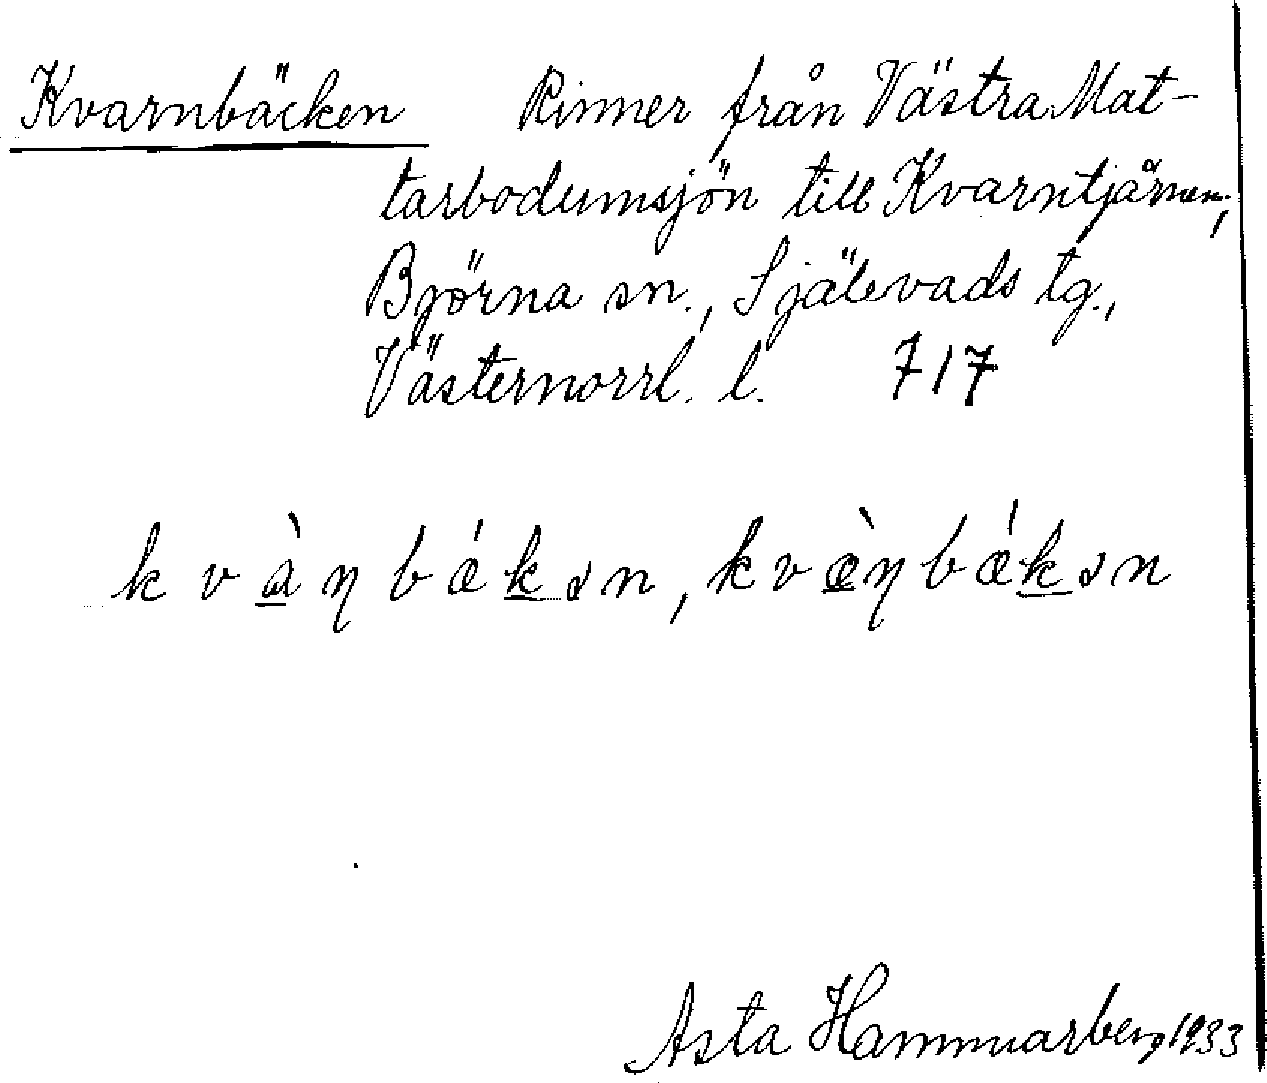 Kvarnbäcken Rinner från Västra Mat-
tarbodumsjön till Kvarntjärnen,
Björna sn., Själevads tg.,
Västernorrl. l. 717
kvàηbǽkən, kvæ̀ηbǽkən
Asta Hammarberg 1933